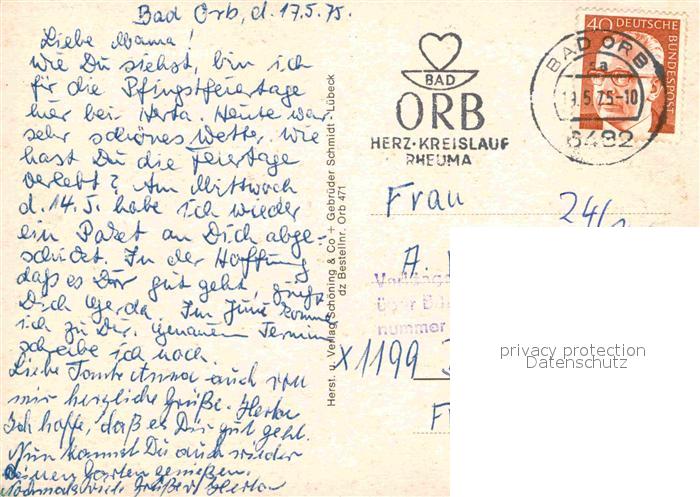 Bad Orb, d. 17.5.75.
Liebe Mama!
Wie Du siehst, bin ich
für die Pfingstfeiertage
hier bei Herta. Heute war
sehr schönes Wetter. Wie
hast Du die Feiertage
verlebt? Am Mittwoch
d. 14.5. habe ich wieder
ein Paket an Dich abge-
schickt. In der Hoffnung
daß es Dir gut geht grüßt
Dich Gerda. Im Juni komme
ich zu Dir. Genauen Termin
schreibe ich noch.
Liebe Tante Anna auch von
mir herzliche Grüße. Herta
Ich hoffe, daß es Dir gut geht.
Nun kannst Du auch wieder
deinen Garten genießen.
Nochmals viele Grüße Herta
Herst. u. Verlag Schöning & Co + Gebrüder Schmidt - Lübeck
dz Bestellnr. Orb 471
BAD
ORB
HERZ·KREISLAUF
RHEUMA
BAD ORB
sa
19.5.75-10
6482
40 DEUTSCHE
BUNDESPOST
Frau
24/
A.
über
nummer
X1199
F
privacy protection
Datenschutz